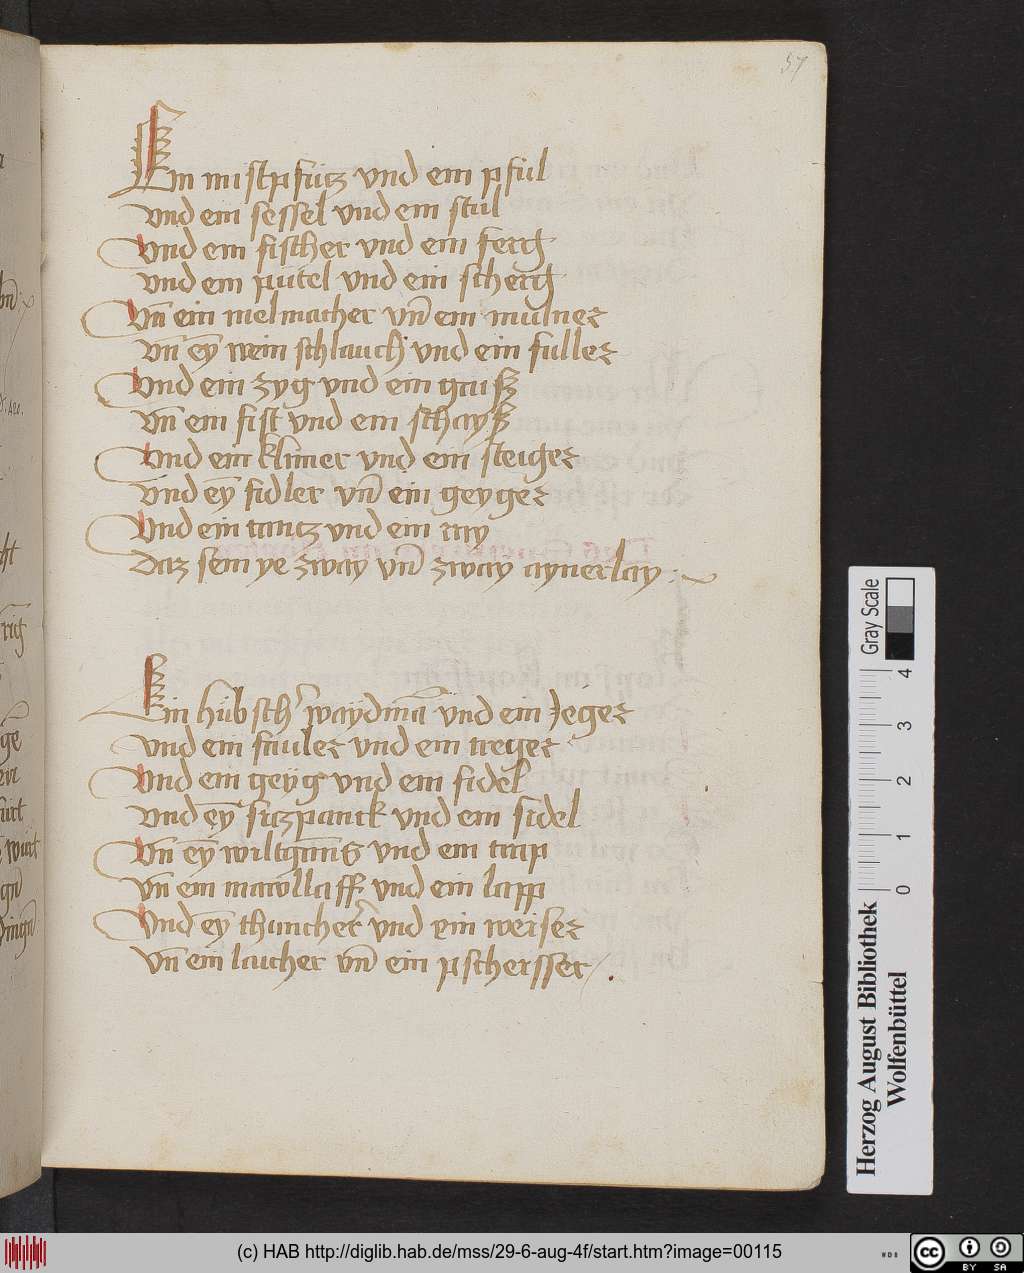 57
Ein mistpfütz vnd ein pfül
vnd ein sessel vnd ein stul
Vnd ein fischer vnd ein ferg
vnd ein pütel vnd ein scherg
Vn̄ ein melmacher vn̄ ein mülner
vn̄ eÿ wein schlauch vnd ein fuller
Vnd ein zyg vnd ein gaiß
vn̄ ein fist vnd ein schayß
Vnd ein klimer vnd ein steiger
vnd eÿ fidler vn̄ ein geyger
Vnd ein tantz vnd ein ray
Daz sein ye zway vn̄ zway aynerlay
Ein hübsch' waydmā vnd ein Jeger
vnd ein fauler vnd ein treger
Vnd ein geyg vnd ein fidel
vnd eȳ sitzpanck vnd ein sidel
Vn̄ eȳ vnd ein trap
vn̄ ein marollaff vnd ein lapp
Vnd eȳ thuncher vnd ein weiser
vn̄ ein laicher vn̄ ein pscheisser
Gray Scale
4 3 2 1 0
Herzog August Bibliothek
Wolfenbüttel
(c) HAB http://diglib.hab.de/mss/29-6-aug-4f/start.htm?image=00115
WDB
cc BY SA